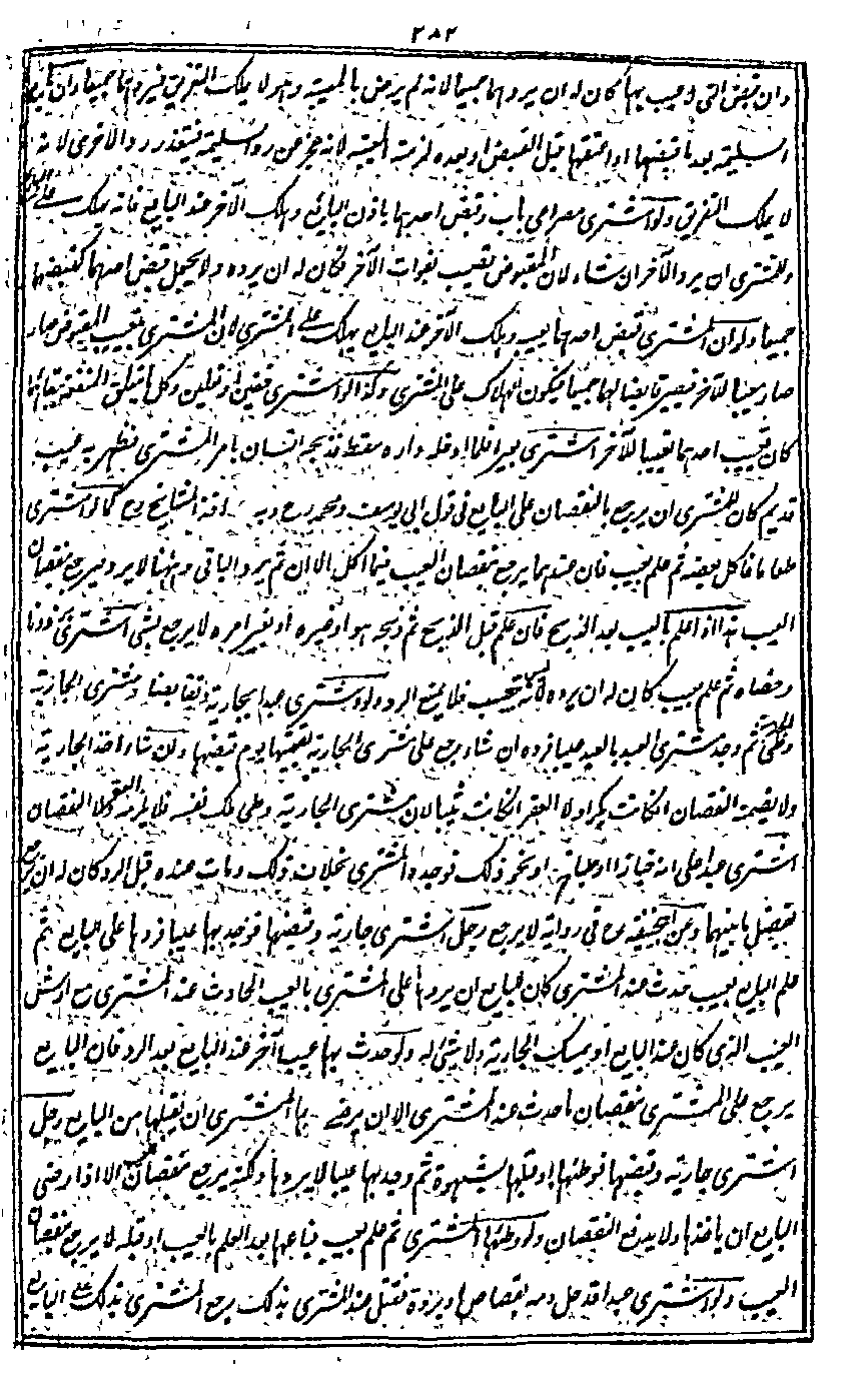 ٢٨٢
وان قبض التي لا عيب بها كان له ان يردهما جميعا لانه لم يرض بالمعيبة وهو لا يملك التفريق فيردهما جميعا وان كان
السليمة بعد ما قبضها او اعتقها قبل القبض او بعده لزمته المعيبة لانه عجز عن رد السليمة فيتعذر رد الاخرى لانه
لا يملك التفريق ولو اشترى مصراعي باب وقبض احدهما باذن البائع وهلك الآخر عند البايع فانه يهلك على البايع
وللمشتري ان يرد الآخر ان شاء لان المقبوض تعيب بفوات الآخر فكان له ان يرده ولا يجعل قبض احدهما كقبضهما
جميعا ولو ان المشتري قبض احدهما وعيب وهلك الآخر عند البايع يهلك على المشتري لان المشتري بتعييب المقبوض صار
صار معيبا للآخر فيصير قابضا لهما جميعا فيكون الهلاك على المشتري وكذا لو اشترى خفين او نعلين وكل ما يتعلق المنفعة بهما
كان تعييب احدهما تعييبا للآخر اشترى بعيرا فلما ادخله داره سقط فذبحه انسان بامر المشتري فظهر به عيب
قديم كان للمشتري ان يرجع بالنقصان على البايع في قول ابي يوسف ومحمد رح وبه اخذ المشايخ رح كما لو اشترى
طعاما فاكل بعضه ثم علم بعيب فان عندهما يرجع بنقصان العيب فيما اكل الا ان ثم يرد الباقي وههنا لا يرد ويرجع بنقصان
العيب هذا اذا علم بالعيب بعد الذبح فان علم قبل الذبح ثم ذبحه هو او غيره بامره او بغير امره لا يرجع بشئ اشترى برذونا
وخصاه ثم علم بعيب كان له ان يرده لانه ليس بعيب فلا يمنع الرد ولو اشترى عبدا بجارية وتقابضا ومشتري الجارية
وطئ ثم وجد مشتري العبد بالعبد عيبا فرده ان شاء رجع على مشتري الجارية بقيمتها يوم قبضها وان شاء اخذ الجارية
ولا يضمنه النقصان ان كانت بكرا ولا العقر ان كانت ثيبا لان مشتري الجارية وطئ ملك نفسه فلا يلزمه العقر ولا النقصان
اشترى عبدا على انه خباز او نحو ذلك فوجده المشتري بخلاف ذلك ومات عنده قبل الرد كان له ان يرجع
بفضل ما بينهما وعن ابي حنيفة رح في رواية لا يرجع رجل اشترى جارية وقبضها فوجد بها عيبا فردها على البايع ثم
علم البايع بعيب حدث عند المشتري كان للبايع ان يردها على المشتري بالعيب الحادث عند المشتري مع ارش
العيب الذي كان عند البايع او يمسك الجارية ولا شئ له ولو حدث بها عيب آخر عند البايع بعد الرد فان البايع
يرجع على المشتري بنقصان ما حدث عند المشتري الا ان يرضى المشتري ان يقبلها من البايع رجل
اشترى جارية وقبضها فوطئها او قبلها بشهوة ثم وجد بها عيبا لا يردها ولكنه يرجع بنقصان العيب الا اذا رضي
البايع ان ياخذها ولا يدفع النقصان ولو وطئها المشتري ثم علم بعيب فباعها بعد العلم بالعيب او قبله لا يرجع بنقصان
العيب ولو اشترى عبدا قد حل دمه بقصاص او بردة فقتل عند المشتري بذلك يرجع المشتري بذلك على البايع